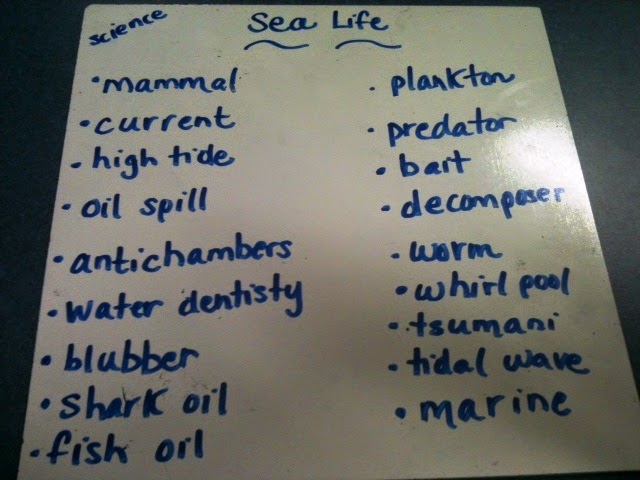 science
Sea Life
• mammal
• current
• high tide
• oil spill
• antichambers
• water dentisty
• blubber
• shark oil
• fish oil
• plankton
• predator
• bait
• decomposer
• worm
• whirl pool
• tsumani
• tidal wave
• marine